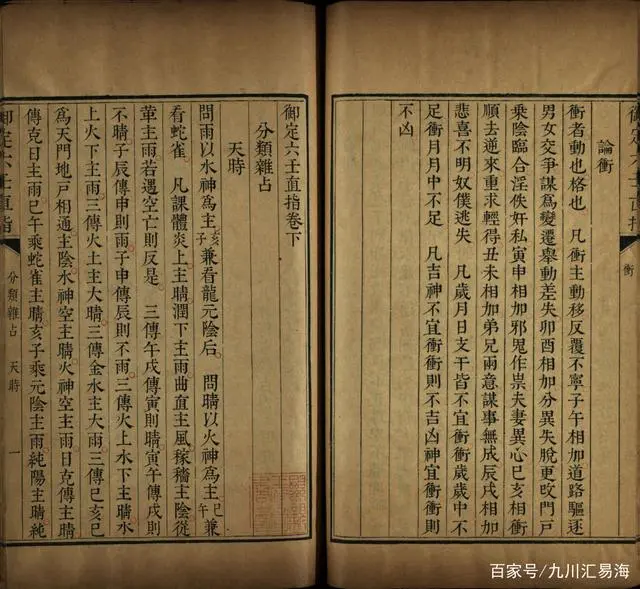 御定六壬直指
衝
論衝
衝者動也格也　凡衝主動移反覆不寧子午相加道路驅逐
男女交爭謀為變遷舉動差失卯酉相加分異失脫更改門戶
乘陰臨合淫佚奸私寅申相加邪鬼作祟夫妻異心巳亥相衝
順去逆來重求輕得丑未相加弟兄兩意謀事無成辰戌相加
悲喜不明奴僕逃失　凡歲月日支干皆不宜衝衝歲歲中不
足衝月月中不足　凡吉神不宜衝衝則不吉凶神宜衝衝則
不凶
御定六壬直指卷下
分類雜占
天時
問雨以水神為主亥子兼看龍元陰后　問晴以火神為主巳午兼
看蛇雀　凡課體炎上主晴潤下主雨曲直主風稼穡主陰從
革主雨若遇空亡則反是　三傳午戌傳寅則晴寅午傳戌則
不晴子辰傳申則雨子申傳辰則不雨三傳火上水下主晴水
上火下主雨三傳火土主大晴三傳金水主大雨三傳巳亥巳
為天門地戶相通主陰水神空主晴火神空主雨日克傳主晴
傳克日主雨巳午乘蛇雀主晴亥子乘元陰主雨純陽主晴純
御定六壬直指
分類雜占　天時
一
百家号/九川汇易海